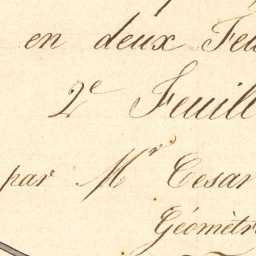 en deux Feu
2e Feuill
par Mr Cesar
Géomètr